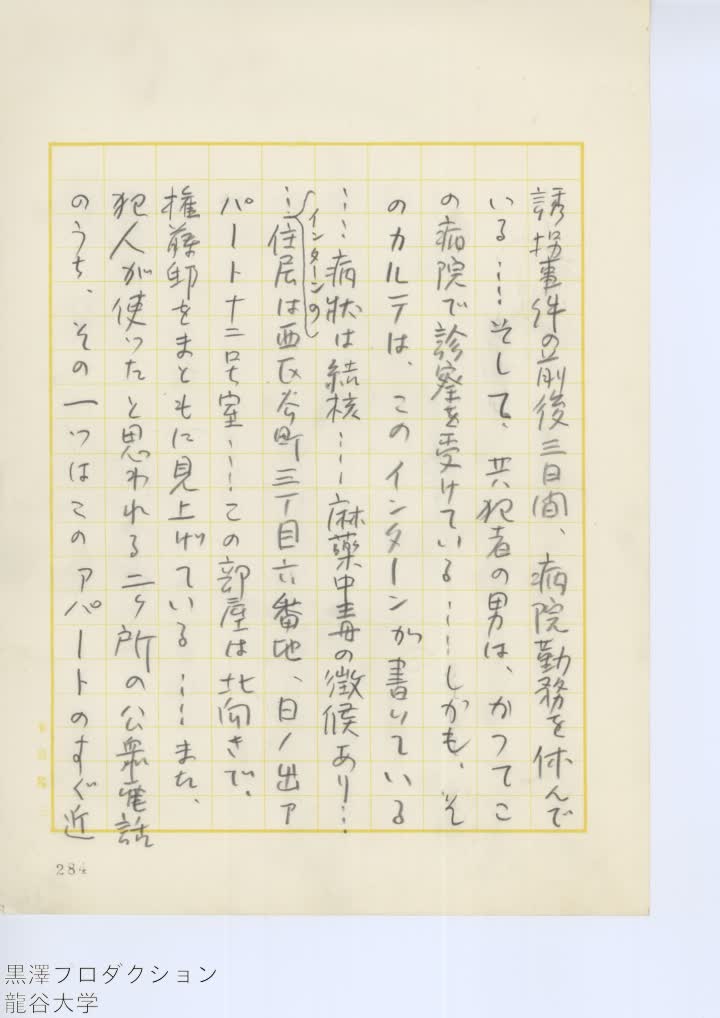 誘拐事件の前後三日間、病院勤務を休んで
いる……そして、共犯者の男は、かつてこ
の病院で診察を受けている……しかも、そ
のカルテは、このインターンが書いている
……病状は結核……麻薬中毒の徴候あり……
インターンの
……住居は西区谷町三丁目六番地、日ノ出ア
パート十二号室……この部屋は北向きで、
権藤邸をまともに見上げている……また、
犯人が使ったと思われる二ヶ所の公衆電話
のうち、その一つはこのアパートのすぐ近
284
黒澤プロダクション
龍谷大学